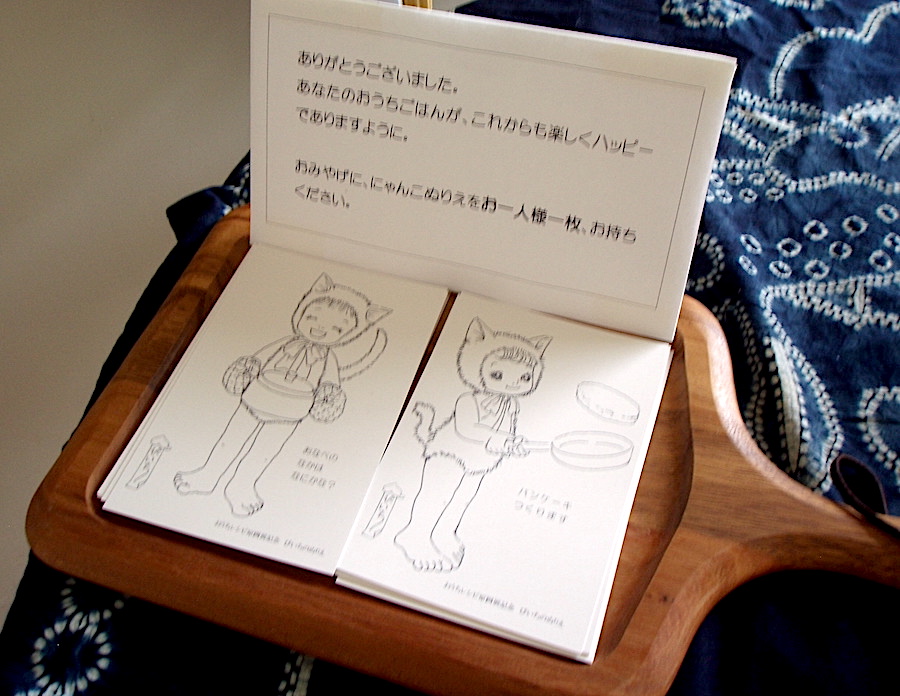 ありがとうございました。
あなたのおうちごはんが、これからも楽しくハッピー
でありますように。
おみやげに、にゃんこぬりえをお一人様一枚、お持ち
ください。
おなべの
なかは
なにかな？
パンケーキ
つくります